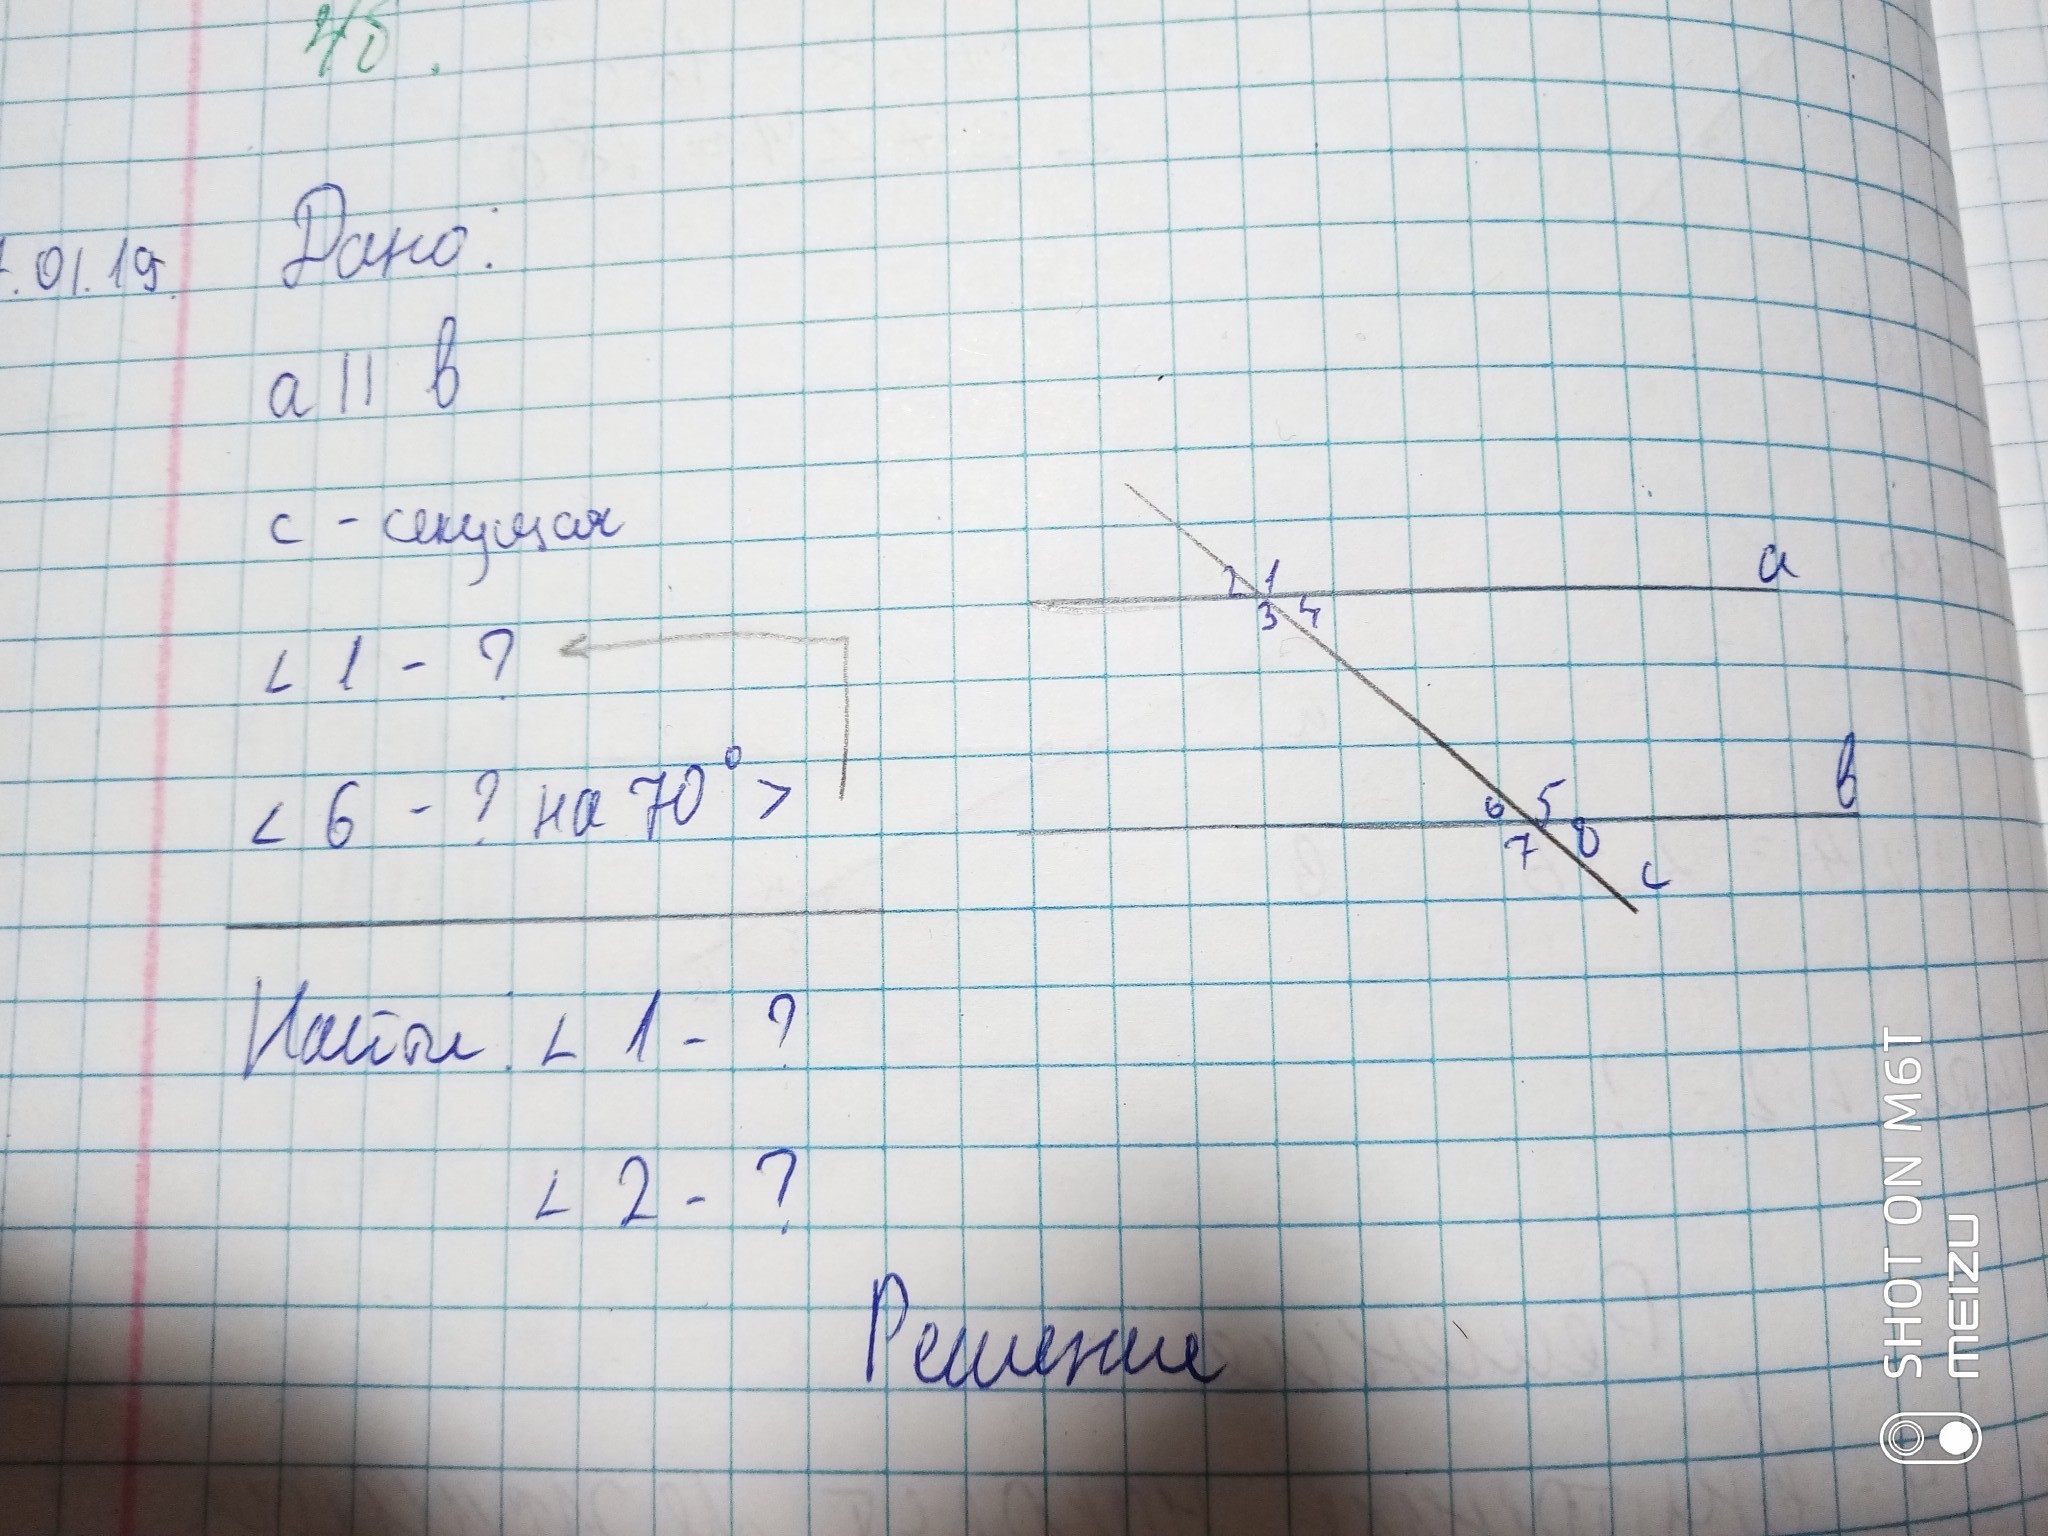 45.
.01.19.
Дано:
a || b
c - секущая
∠ 1 - ?
∠ 6 - ? на 70° >
Найти: ∠ 1 - ?
∠ 2 - ?
Решение
2 1 a
3 4
6 5 b
7 8
c
SHOT ON M6T
MEIZU